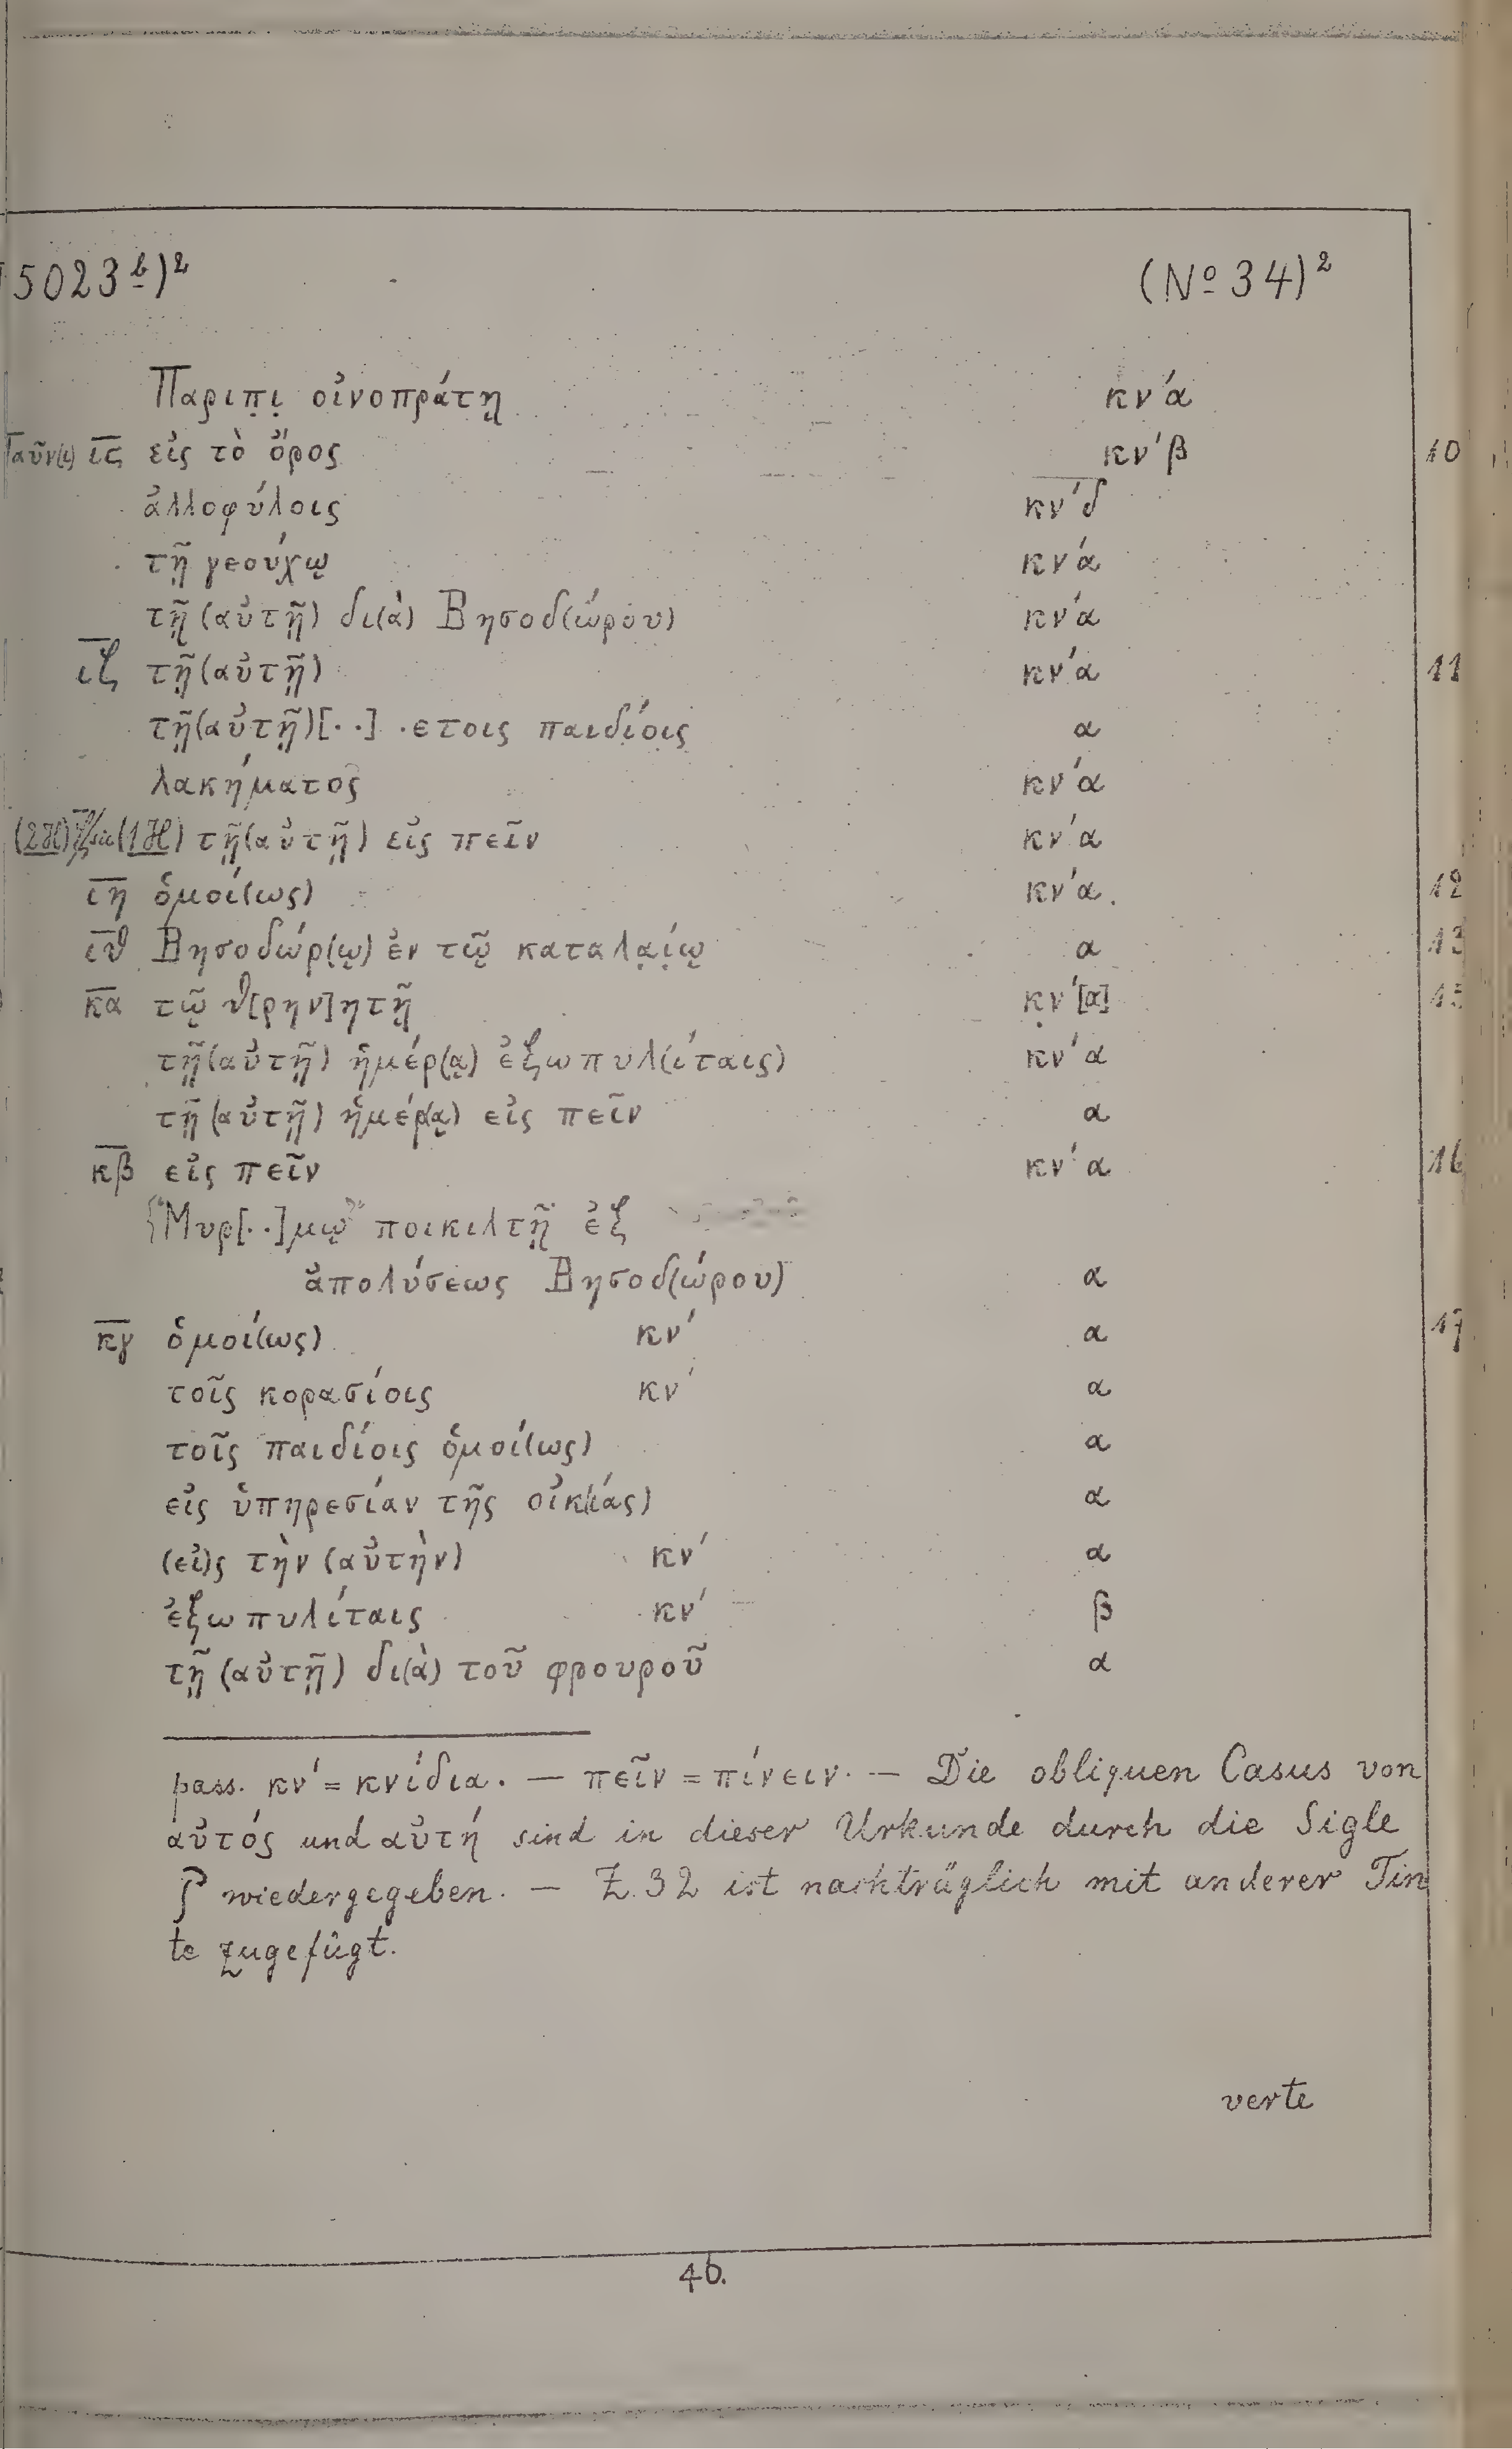 5023 b)²	(Nº 34)²
Παριπ̣ι̣ οἰνοπράτῃ	κν´ α
Παῦν(ι) ις̅ εἰς τὸ ὄρος	κν´ β	10
ἀλλοφύλοις	κν´ δ
τῇ γεούχῳ	κν´ α
τῇ (αὐτῇ) δι(ὰ) Βησοδ(ώρου)	κν´ α
ιζ̅ τῇ (αὐτῇ)	κν´ α	11
τῇ (αὐτῇ) [··] ·ετοις παιδίοις	α
λακήματος	κν´ α
(2H) (1H) τῇ (αὐτῇ) εἰς πεῖν	κν´ α
ιη̅ ὁμοί(ως)	κν´ α.	12
ιθ̅ Βησοδώρ(ῳ) ἐν τῷ καταλα̣ί̣ῳ	α	13
κα̅ τῷ θ[ρην]ητῇ	κ̣ν´ [α]	15
τῇ (αὐτῇ) ἡμέρ(ᾳ) ἐξωπυλ(ίταις)	κν´ α
τῇ (αὐτῇ) ἡμέρ(ᾳ) εἰς πεῖν	α
κβ̅ εἰς πεῖν	κν´ α	16
Μυρ[··]μῳ ποικιλτῇ ἐξ
ἀπολύσεως Βησοδ(ώρου)	α
κγ̅ ὁμοί(ως)	κν´	α	17
τοῖς κορασίοις	κν´	α
τοῖς παιδίοις ὁμοί(ως)	α
εἰς ὑπηρεσίαν τῆς οἰκ(ίας)	α
(εἰ)ς τὴν (αὐτὴν)	κν´	α
ἐξωπυλίταις	κν´	β
τῇ (αὐτῇ) δι(ὰ) τοῦ φρουροῦ	α
pass. κν´ = κνίδια. — πεῖν = πίνειν. — Die obliquen Casus von
αὐτός und αὐτή sind in dieser Urkunde durch die Sigle
ʃ wiedergegeben. — Z. 32 ist nachträglich mit anderer Tin
te zugefügt.
verte
46.